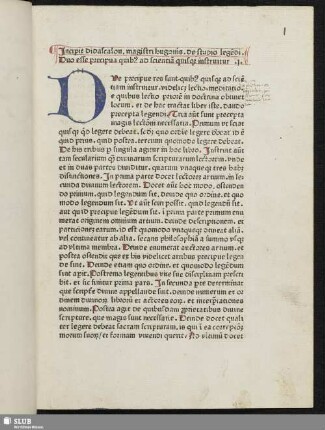 1
Incipit didascalon. magistri hugonis. de studio legēdi.
Duo esse precipua quib⁹ ad scientiā quisqȝ instruitur .i.
Due precipue res sunt. quib⁹ quisqȝ ad sciē
tiam instruitur. videlicȝ lectio. meditatio.
e quibus lectio priorē in doctrina obtinet
locum. et de hac tractat liber iste. dando
precepta legendi. Tria aūt sunt precepta
magis lectoni necessaria. Primum vt sciat
quisqȝ qd legere debeat. scdȝ quo ordīe legere debeat id ē
quid prius. quid postea. tercium quomodo legere debeat
De his tribus p singula agitur in hoc libro. Instruit aūt
tam secularium qȝ diuinarum scripturarum lectorem. vnde
et in duas partes diuiditur. quarum vnaqueqȝ tres habȝ
distinctiones. In prima parte docet lectorem artium. in se
cunda diuinum lectorem. Docet aūt hoc modo. ostenden
do primum. quid legendum sit. deinde quo ordine. et quo
modo legendum sit. Vt aūt sciri possit. quid legendū sit.
aut quid precipue legendum sit. in prima parte primum enu
merat originem omnium artium. deinde descriptionem. et
particiones earum. id est quomodo vnaqueqȝ contineat aliā.
vel contineatur ab alia. secans philosophiā a summo vsqȝ
ad vltima membra. Deinde enumerat auctores artium. et
postea ostendit que ex his videlicet artibus precipue legen
de sunt. Deinde etiam quo ordine. et quomodo legende
sunt aperit. Postremo legentibus vite sue disciplinam prescri
bit. et sic finitur prima pars. In secunda pte determinat
que scripture diuine appellande sunt. deinde numerum et or
dinem diuinorū librorū et auctores eorū. et interpretationes
nominum. Postea agit de quibusdam proprietatibus diuine
scripture. que magis sunt necessarie. Deinde docet quali
ter legere debeat sacram scripturam. is qui in ea correctionē
morum suorū et formam viuendi querit. Ad vltimū docet
SLUB